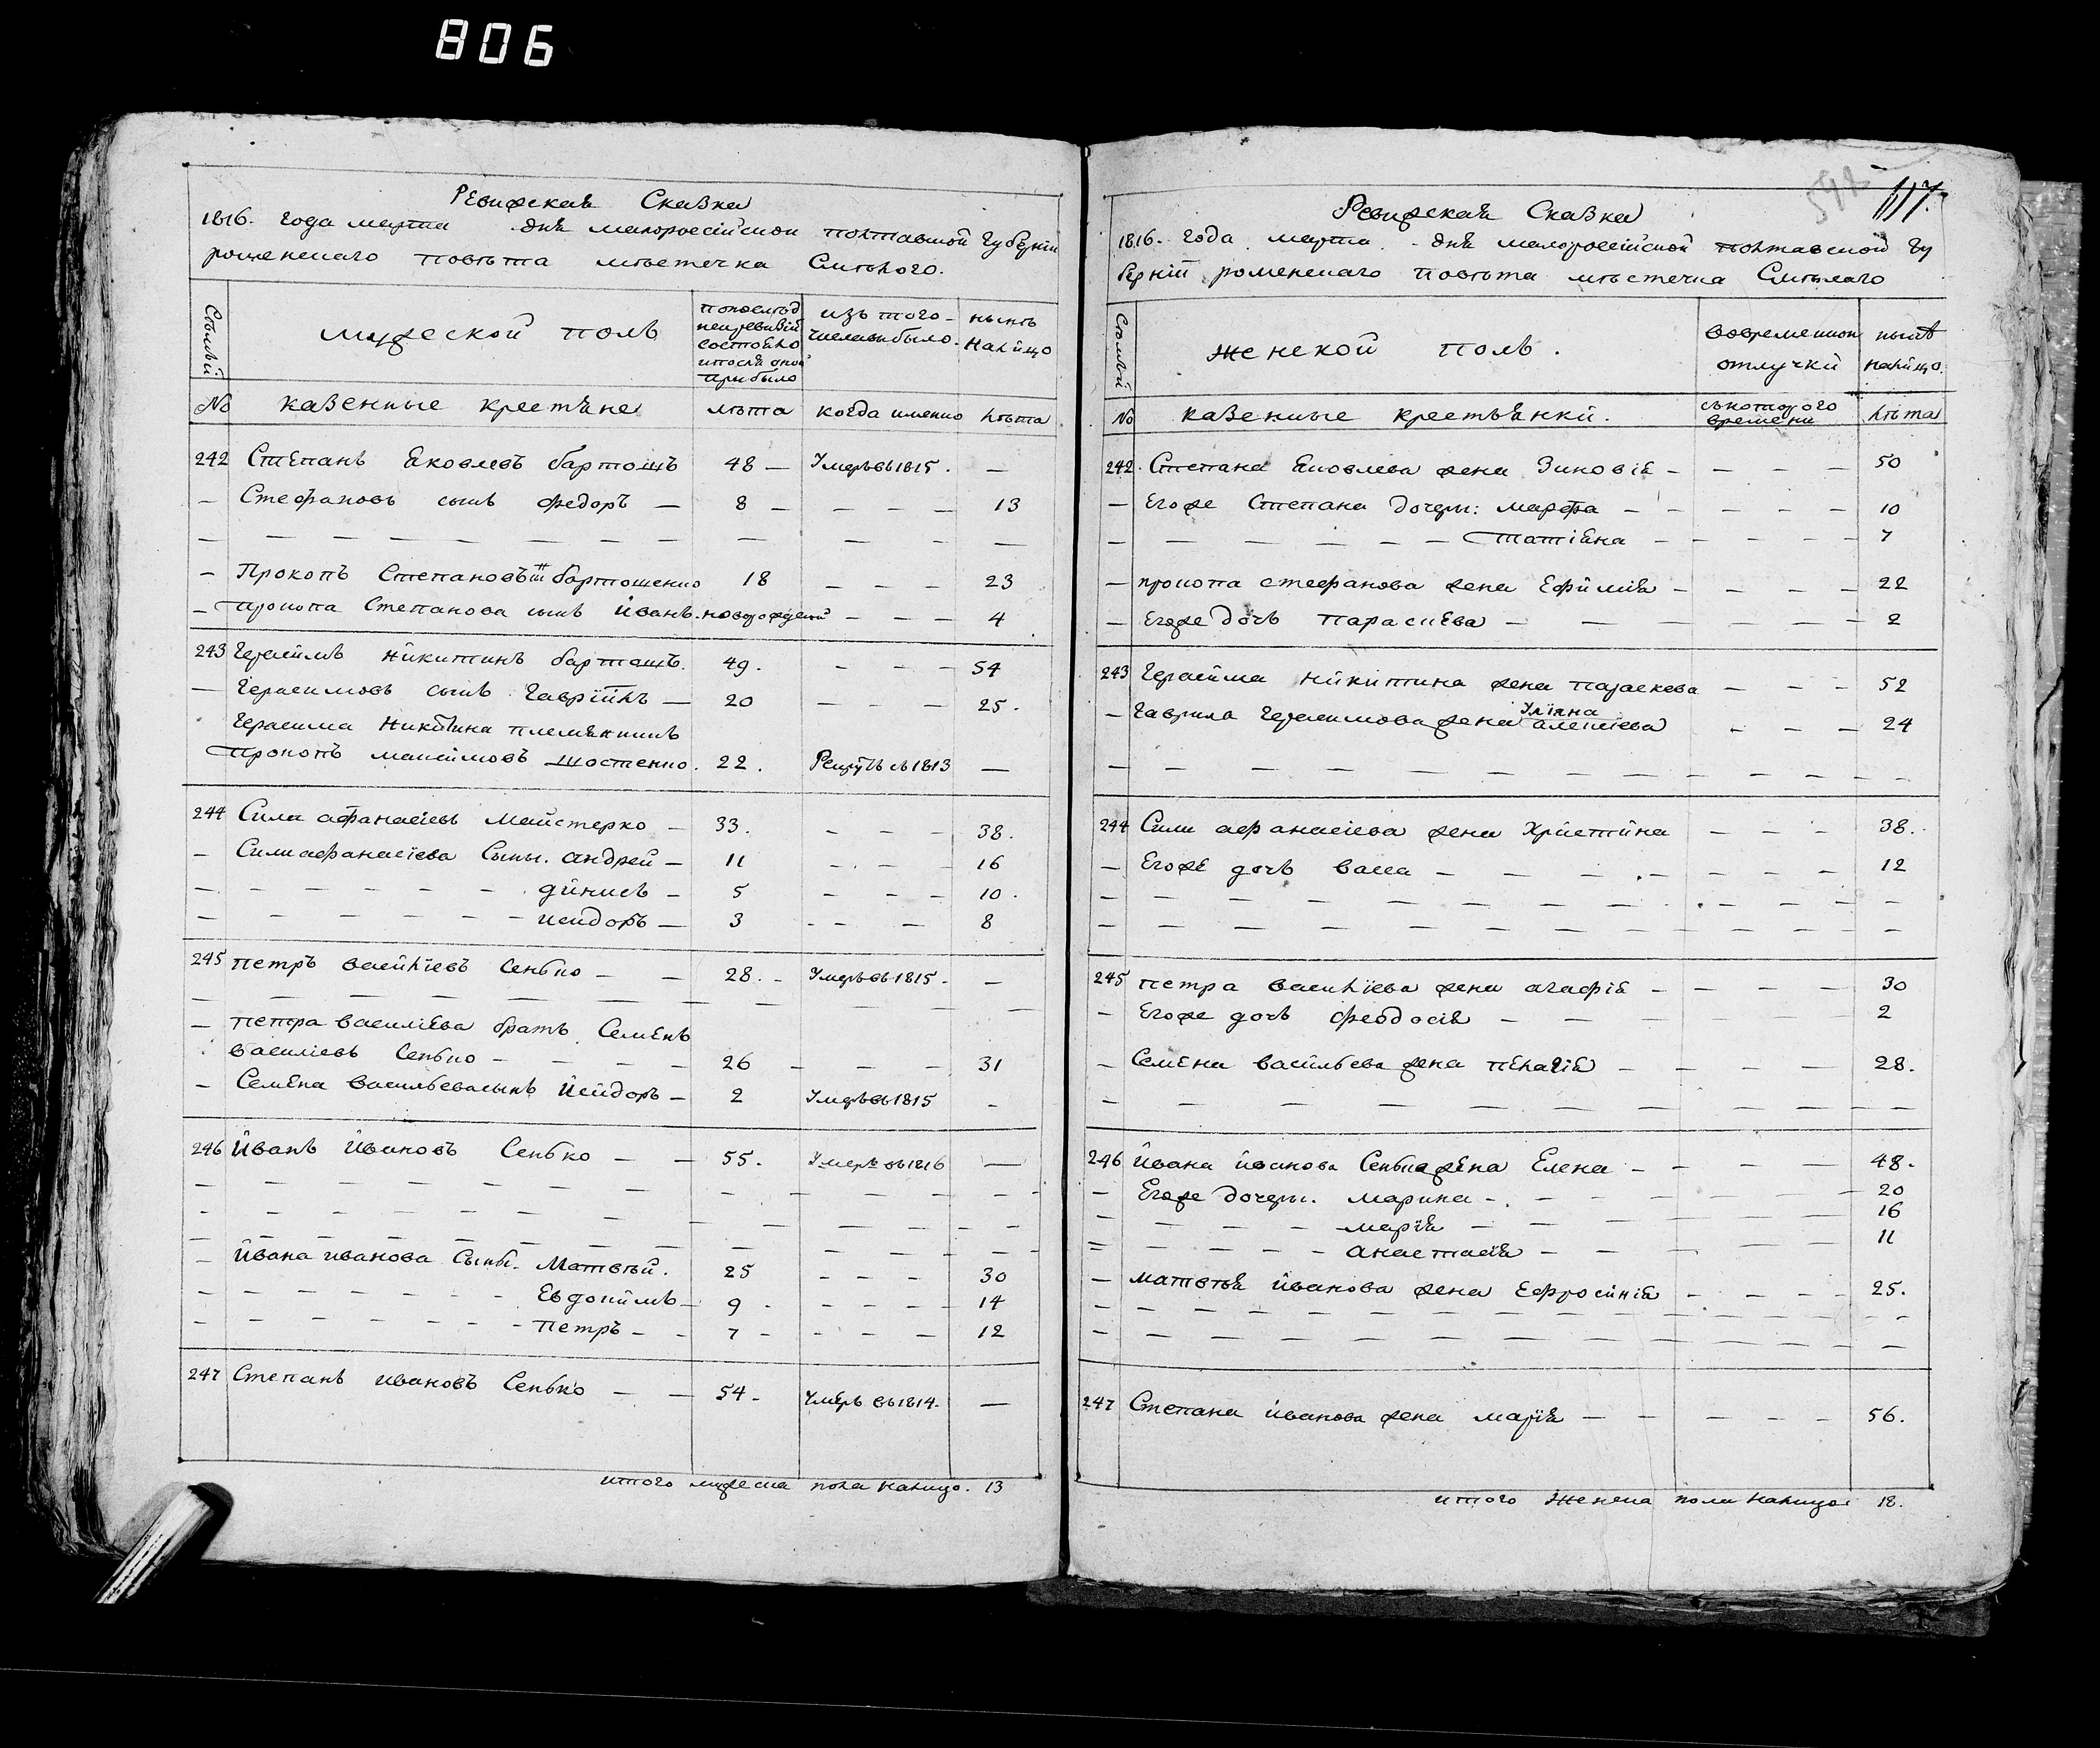 806
Ревизская Сказка
1816. года марта дня малороссійской полтавской губерніи
роменскаго повѣта мѣстечка Смѣлого.
Семьи
мужеской полъ
попоследней ревизіи состояло и после оной прибыло
изъ того числа выбыло.
нынѣ налицо
No казенные крестяне лѣта когда именно лѣта
242 Степанъ Яковлевъ бартошъ 48 — Умеръ въ 1815. —
— Стефановъ сынъ федоръ — 8 — — — — 13
— Прокопъ Степановъ бартошенко 18 — — — 23
— прокопа Степанова сынъ иванъ. новорожденный — — — 4
243 Герасимъ никитинъ бартошъ. 49. — — — 54
— Герасимовъ сынъ Гаврійлъ — 20 — — — 25.
Герасима Никитина племянникъ
прокопъ максимовъ шостенко. 22. Рекрутъ въ 1813 —
244 Сила афанасіевъ Майстерко — 33. — — — 38.
— Сили афанасіева Сыны. андрей — 11 — — — 16
— — — — — — динисъ — 5 — — — 10.
— — — — — — исидоръ — 3 — — — 8
245 петръ василіевъ Сенько — — 28. — Умеръ въ 1815. —
— петра василіева братъ Семенъ
василіевъ Сенько — — — — 26 — — — 31
— Семена васильева сынъ исидоръ — 2 Умеръ въ 1815 —
246 иванъ ивановъ Сенько — — 55. Умеръ въ 1816 —
— ивана иванова Сыны. Матвѣй. 25 — — — 30
— — — — — — Евдокимъ — 9 — — — — 14
— — — — — — петръ — — 7 — — — — 12
247 Степанъ ивановъ Сенько — — 54 — Умеръ въ 1814. —
итого мужеска пола налицо. 13
542 117.
Ревизская Сказка
1816. года. марта. дня малороссійской полтавской гу
берніи роменскаго повѣта мѣстечка Смѣлаго
Семьи
женской полъ.
вовременной отлучки
нынѣ налицо.
No казенные крестьянки. съ котораго времени лѣта
242. Степана Яковлева жена Зиновія — — — — 50
— Егоже Степана дочери: марфа — — — — — 10
— — — — — — татіяна — — — — — 7
— прокопа стефанова жена Ефимія — — — — 22
— Егоже дочь параскева — — — — — 2
243 Герасима никитина жена параскева — — — 52
Уліяна
— Гаврила Герасимова жена алексіева — — — 24
244 Сили афанасіева жена Христина — — — 38.
— Егоже дочь васса — — — — — — — 12
245 петра василіева жена агафія — — — — 30
— Егоже дочь феодосія — — — — — — 2
— Семена васильева жена пелагія — — — — 28.
246 ивана иванова Сенька жена Елена — — — — 48.
— Егоже дочери. марина — — — — — — 20
— — — — марія — — — — — — 16
— — — — анастасія — — — — — 11
— матвѣя иванова жена Ефросинія — — — — 25.
247 Степана иванова жена марія — — — — — 56.
итого женска пола налицо 18.